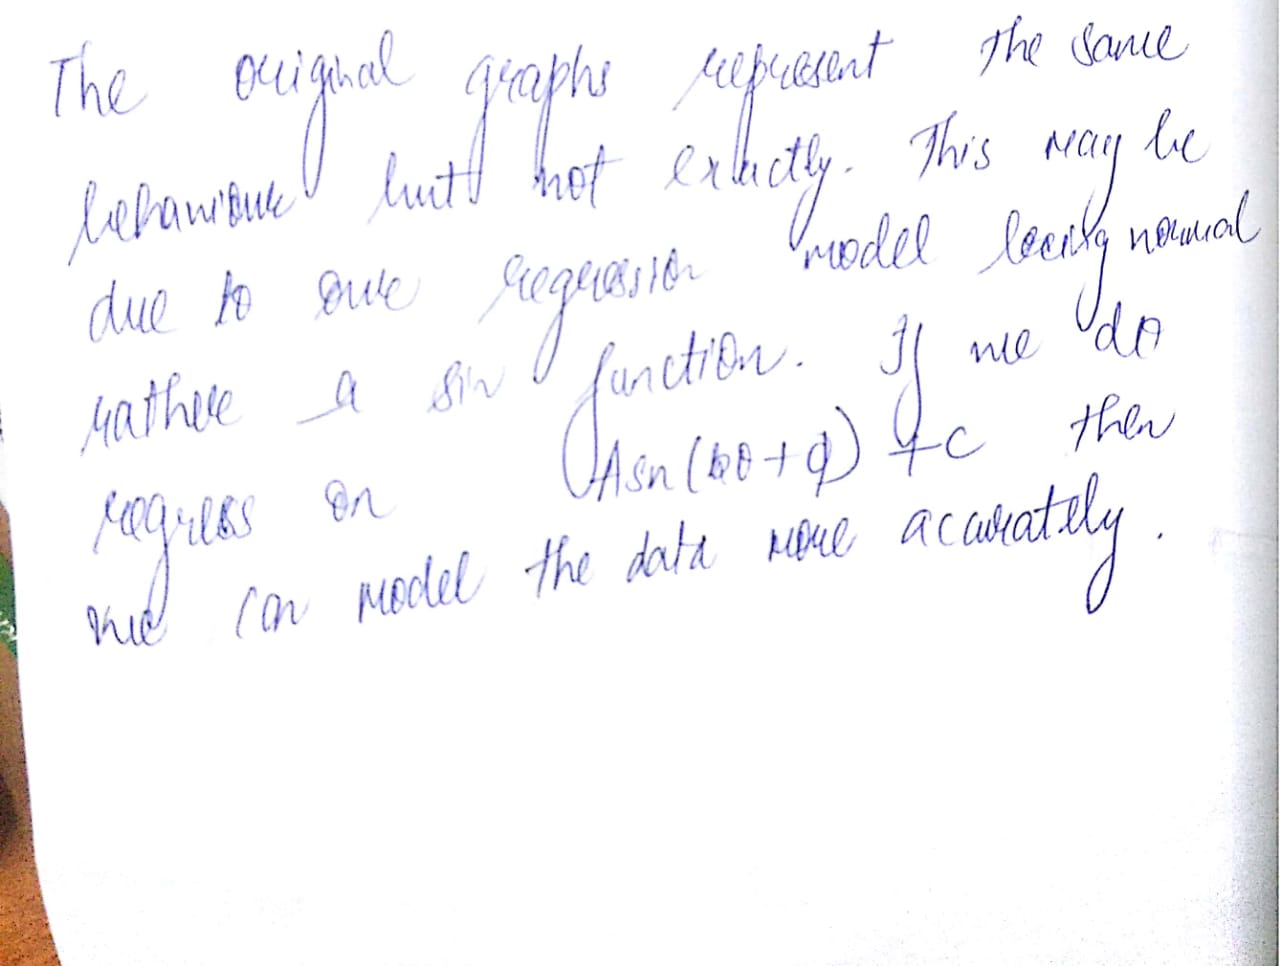 The original graphs represent the same
behaviour but not exactly. This may be
due to our regression model being normal
rather a sin function. If we do
regress on Asn(bθ+φ)+c then
we can model the data more accurately.